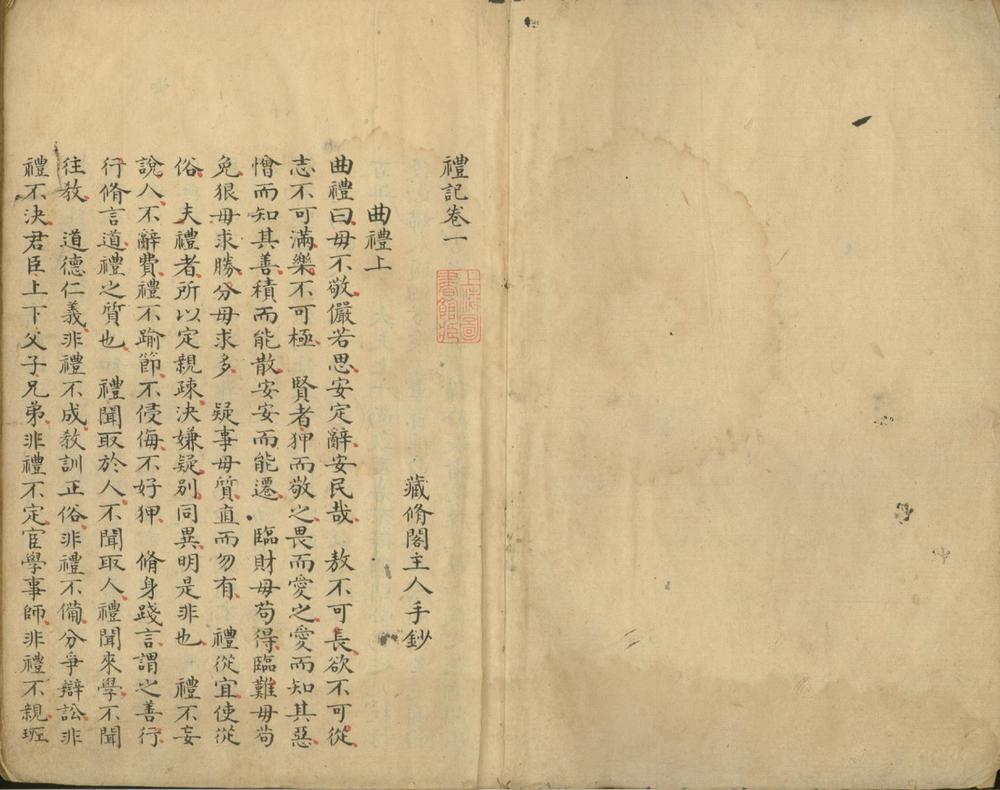 禮記卷一
上海圖
書館藏
藏脩閣主人手鈔
曲禮上
曲禮曰毋不敬儼若思安定辭安民哉 敖不可長欲不可從
志不可滿樂不可極 賢者狎而敬之畏而愛之愛而知其惡
憎而知其善積而能散安安而能遷 臨財毋苟得臨難毋苟
免狠毋求勝分毋求多 疑事毋質直而勿有 禮從宜使從
俗 夫禮者所以定親疎決嫌疑別同異明是非也 禮不妄
說人不辭費禮不踰節不侵侮不好狎 脩身踐言謂之善行
行脩言道禮之質也 禮聞取於人不聞取人禮聞來學不聞
往敎 道德仁義非禮不成敎訓正俗非禮不備分爭辯訟非
禮不決君臣上下父子兄弟非禮不定宦學事師非禮不親班